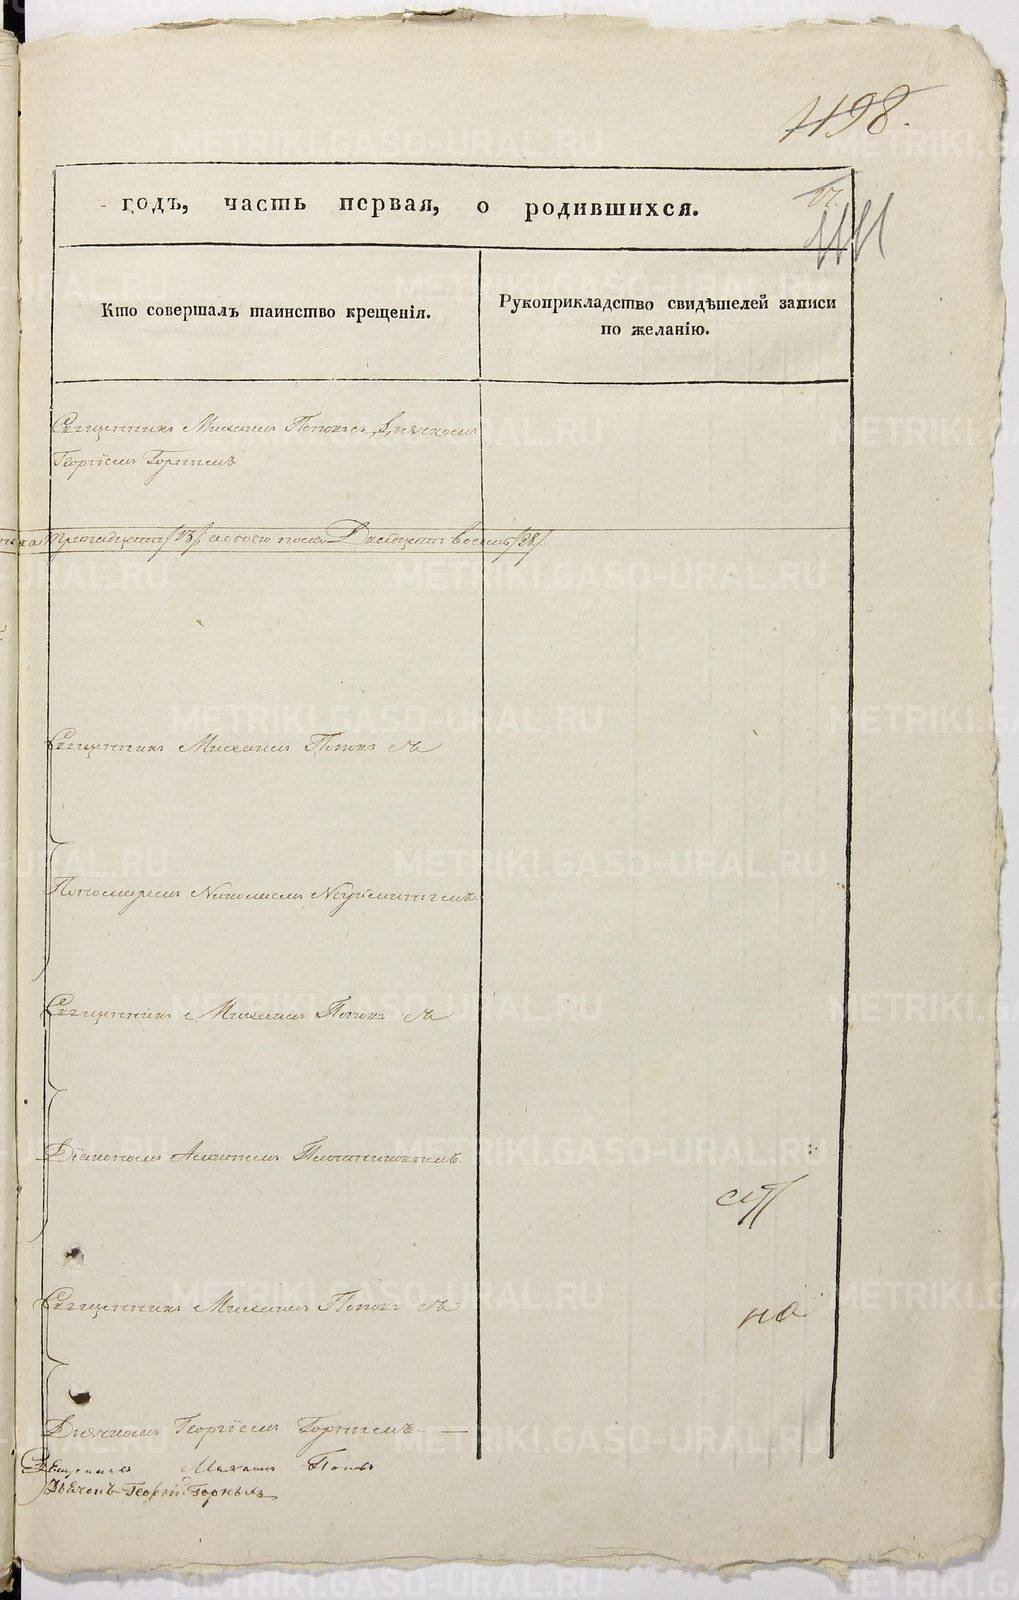 498.
годъ, часть первая, о родившихся.
Кто совершалъ таинство крещенія.
Рукоприкладство свидѣтелей записи
по желанію.
Священникъ Михаилъ Поповъ съ Дьячкомъ
Георгіемъ Горнымъ
тринадцать /13/, а обоего пола Двадцать восемь /28/.
Священникъ Михаилъ Поповъ съ
Пономаремъ Николаемъ Неуйминымъ
Священникъ Михаилъ Поповъ съ
Діакономъ Алексѣемъ Плотниковымъ
Священникъ Михаилъ Поповъ съ
но
Дьячкомъ Георгіемъ Горнымъ
Священникъ Михаилъ Поповъ
Дьячекъ Георгій Горныхъ
METRIKI.GASO-URAL.RU